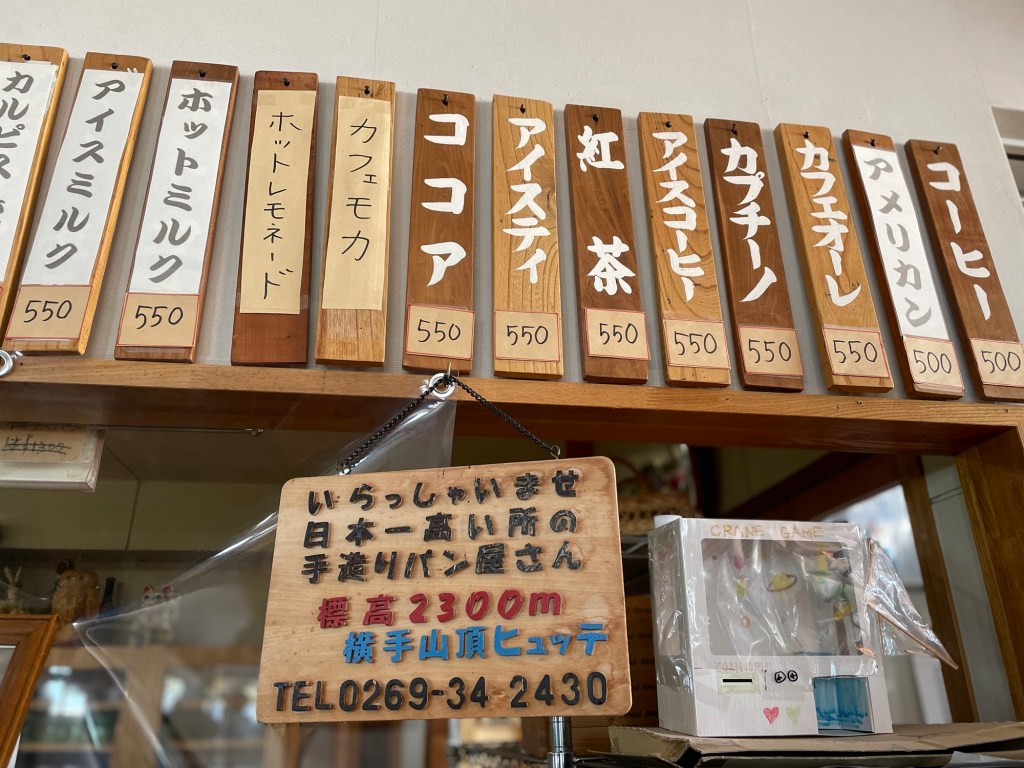 カルピス
アイスミルク
550
ホットミルク
550
ホットレモネード
カフェモカ
ココア
550
アイスティ
550
紅茶
550
アイスコーヒー
550
カプチーノ
550
カフェオーレ
550
アメリカン
500
コーヒー
500
いらっしゃいませ
日本一高い所の
手造りパン屋さん
標高2300m
横手山頂ヒュッテ
TEL0269-34 2430
CRANE GAME